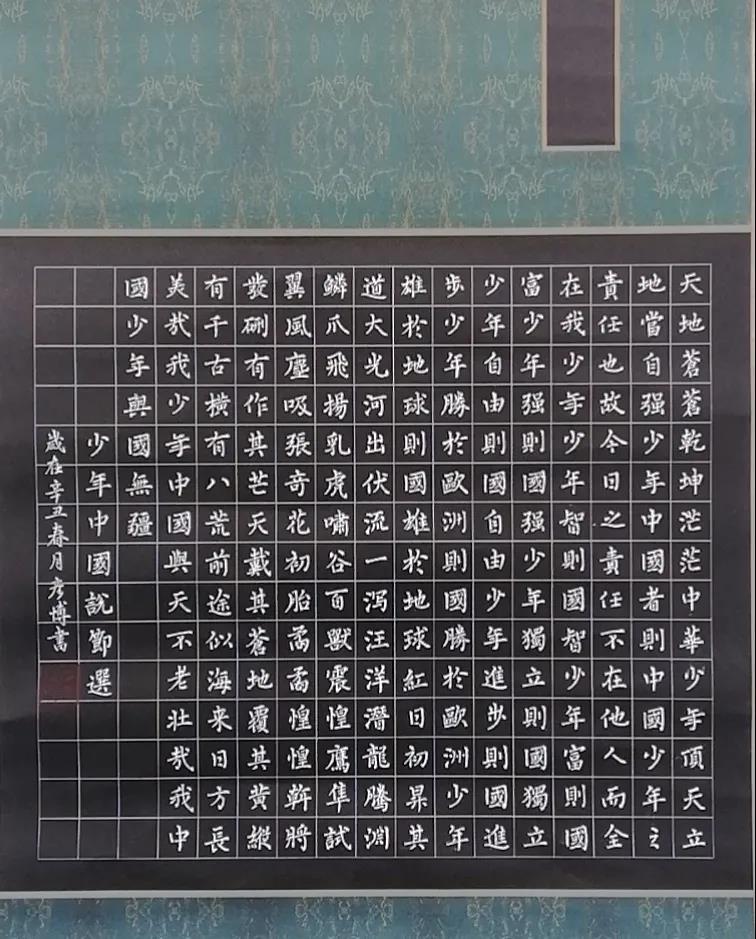 天地蒼蒼乾坤茫茫中華少年頂天立
地當自强少年中國者則中國少年之
責任也故今日之責任不在他人而全
在我少年少年智則國智少年富則國
富少年强則國强少年獨立則國獨立
少年自由則國自由少年進步則國進
步少年勝於歐洲則國勝於歐洲少年
雄於地球則國雄於地球紅日初昇其
道大光河出伏流一瀉汪洋潛龍騰淵
鱗爪飛揚乳虎嘯谷百獸震惶鷹隼試
翼風塵吸張奇花初胎矞矞惶惶將
發硎有作其芒天戴其蒼地覆其黄縱
有千古横有八荒前途似海来日方長
美哉我少年中國與天不老壯哉我中
國少年與國無疆
少年中國說節選
歲在辛丑春月彦博書